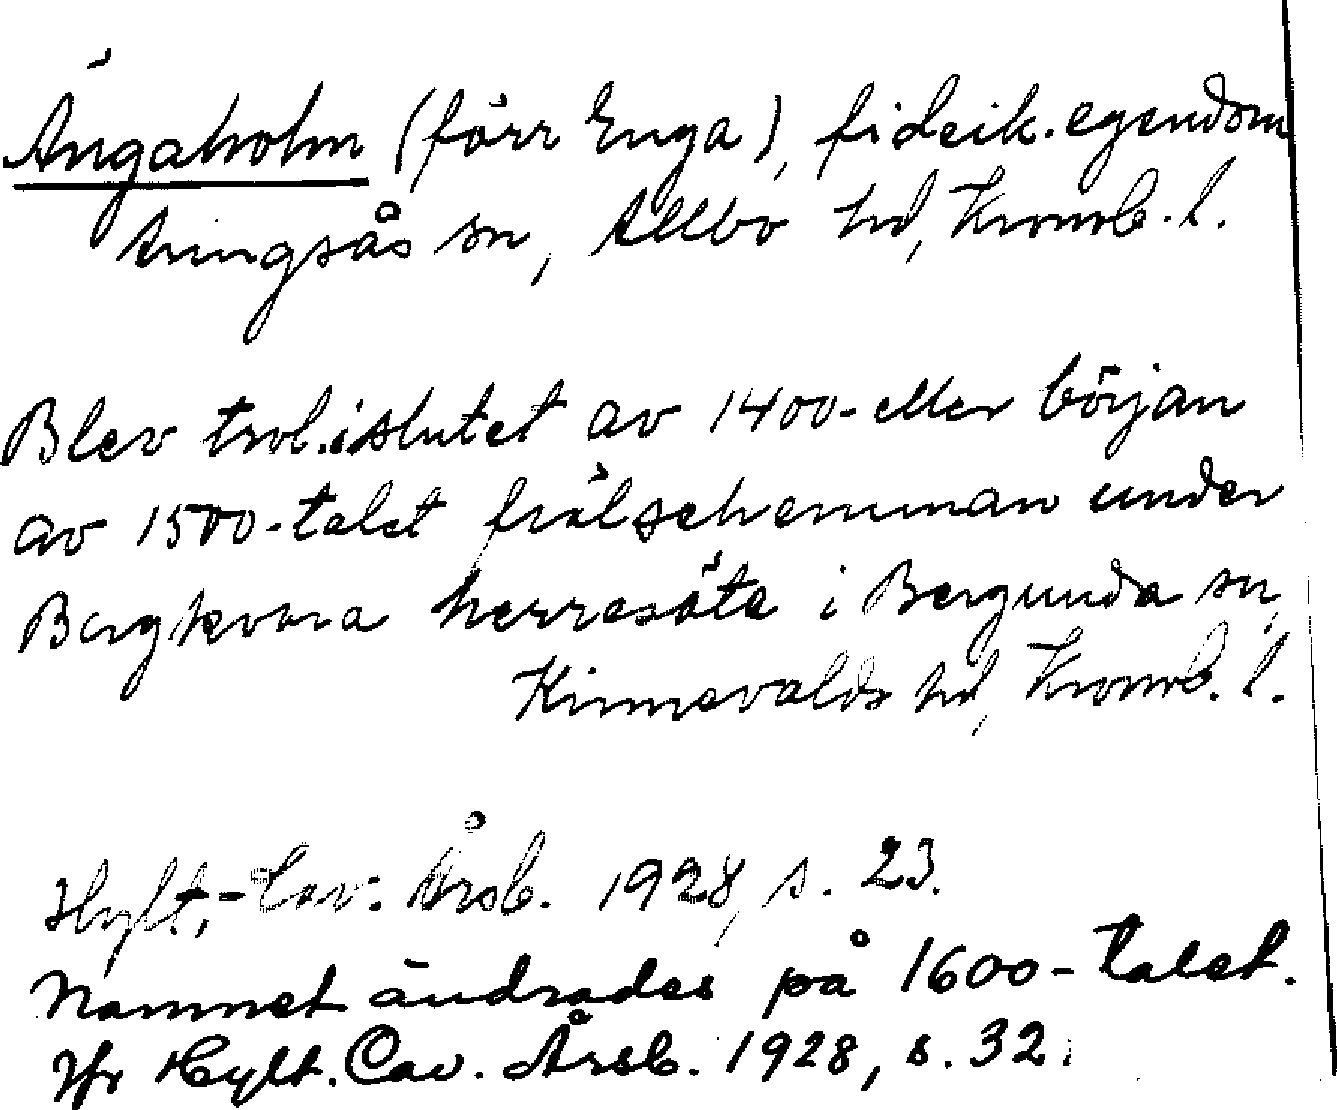 Ängaholm (förr Enga), fideik. egendom
Aringsås sn, Allbo hd, Kronob. l.
Blev trol. i slutet av 1400- eller början
av 1500-talet frälsehemman under
Bergkvara herresäte i Bergunda sn,
Kinnevalds hd, Kronob. l.
Hylt.-Cav. Årsb. 1928, s. 23.
Namnet ändrades på 1600-talet.
Jfr Hylt. Cav. Årsb. 1928, s. 32.